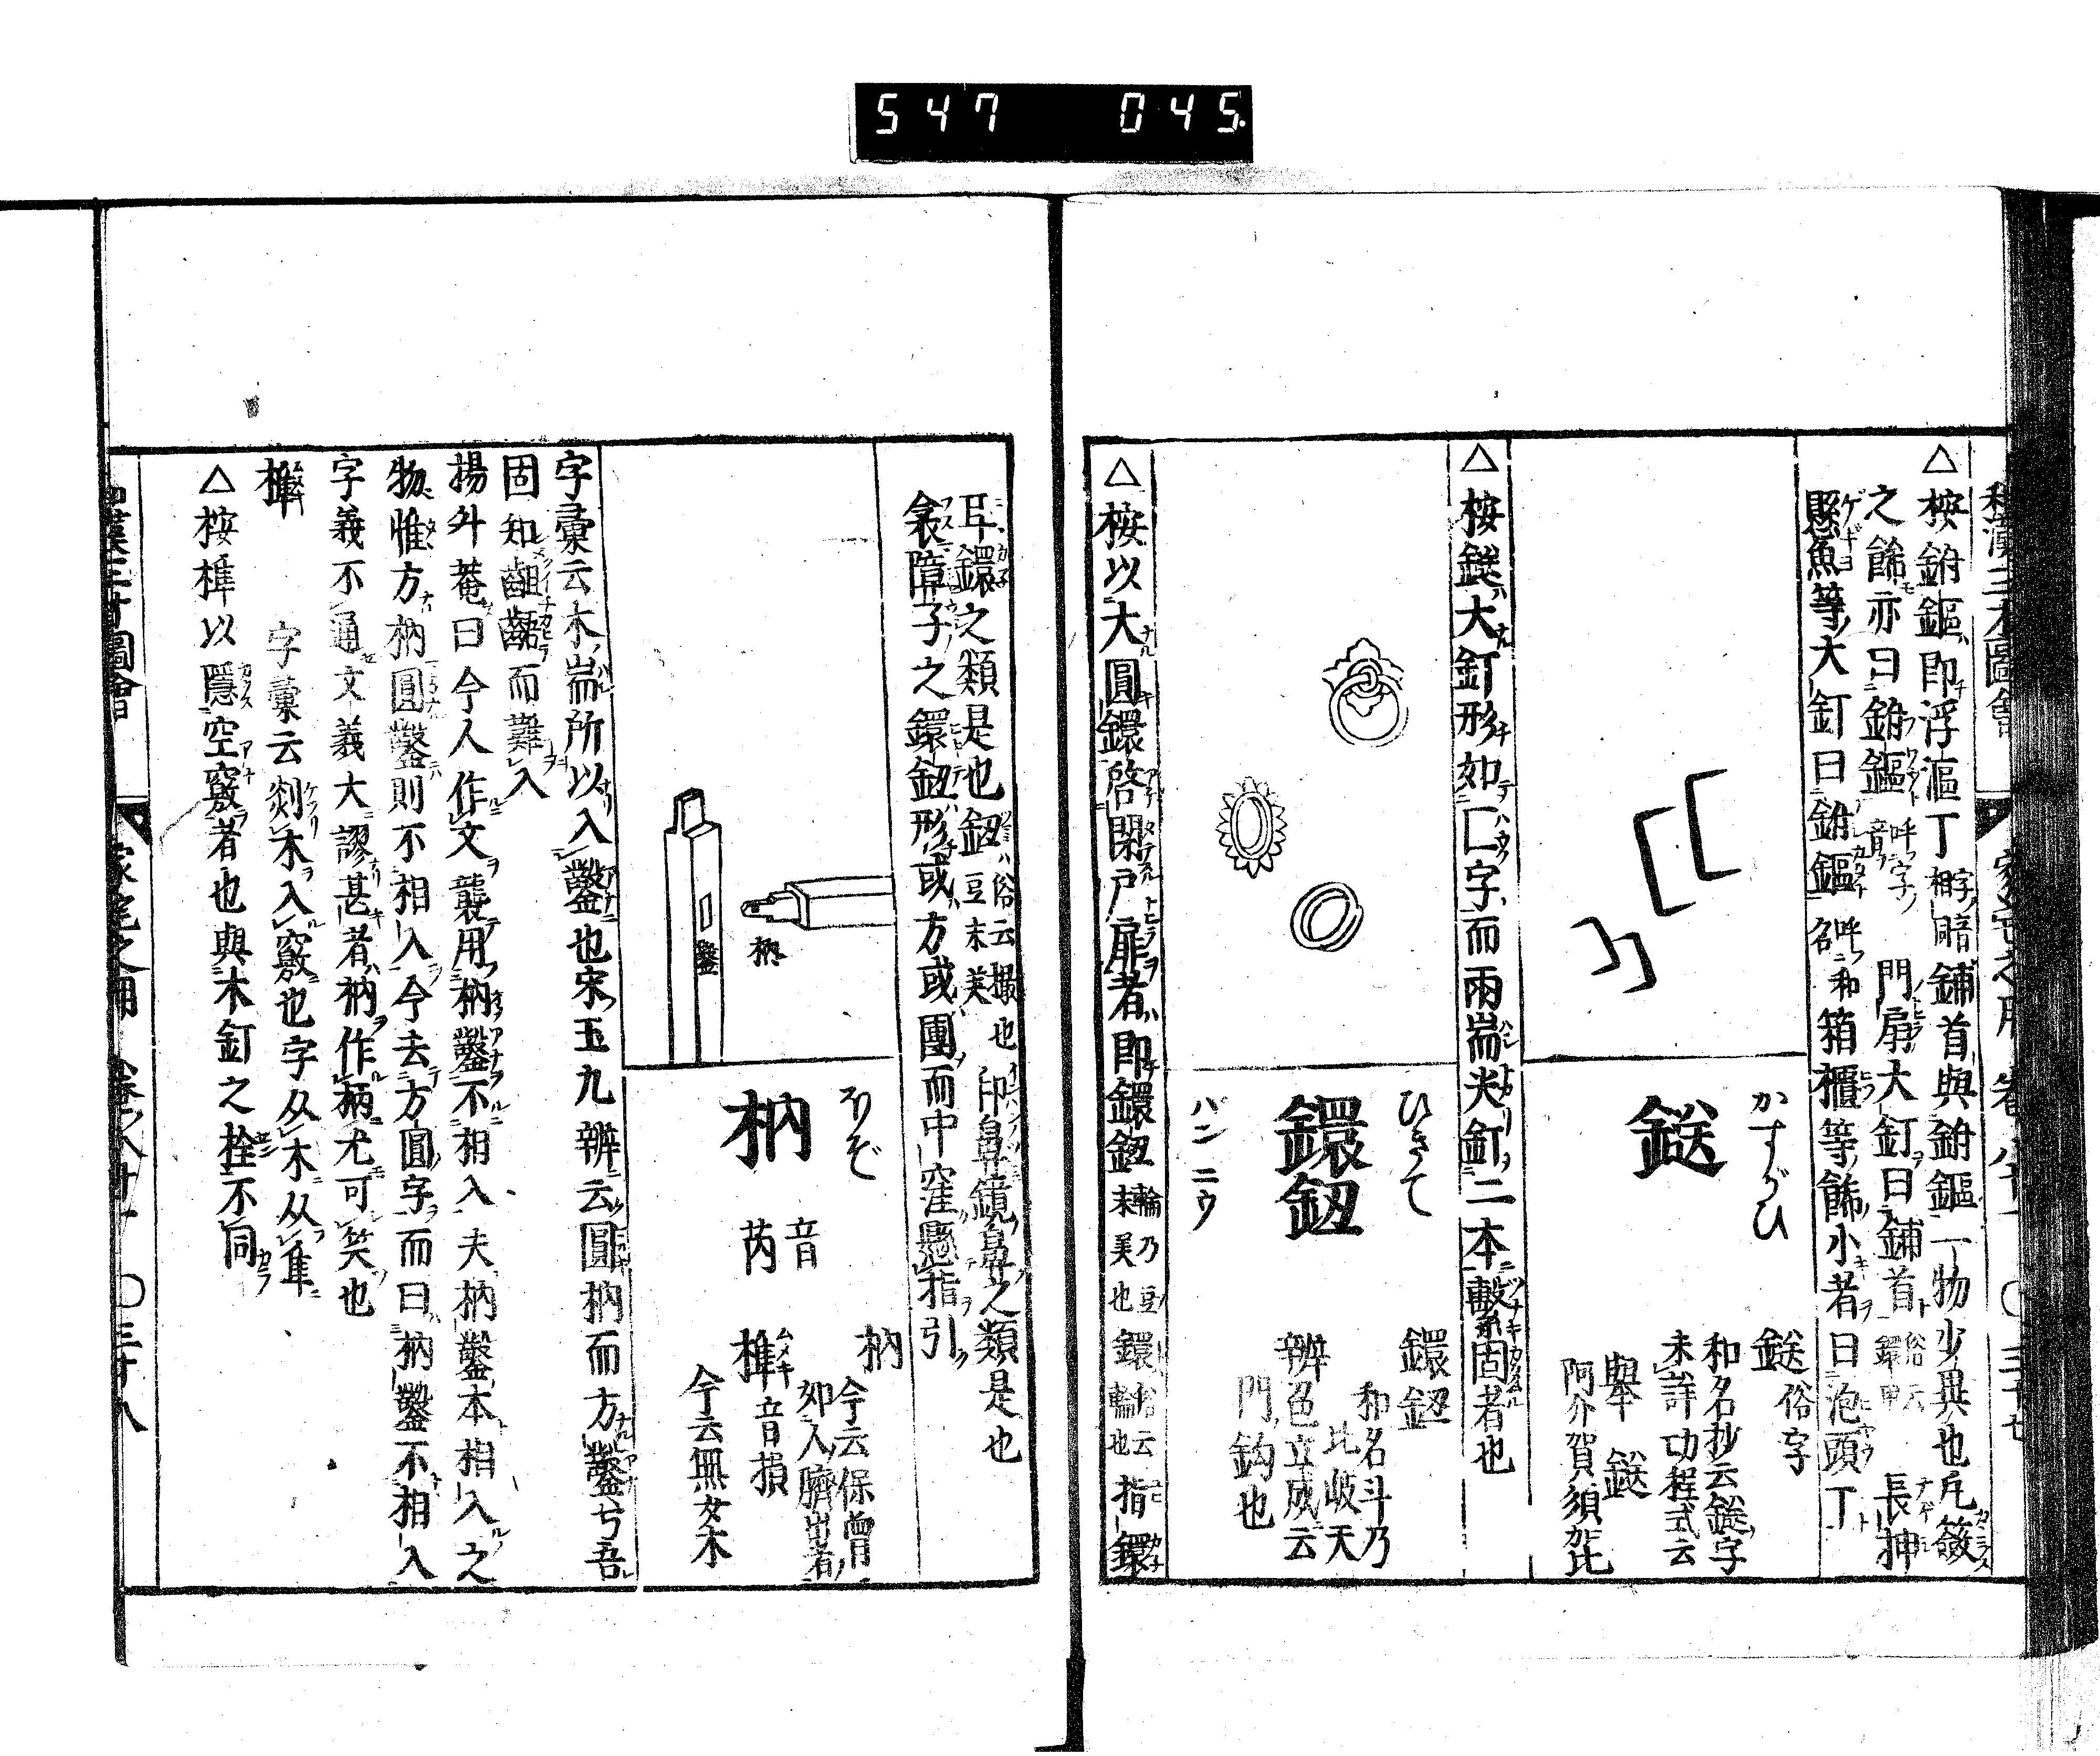 547 045
和漢三才圖會
家宅之用 卷ノ八十一 〇三十七
△按鉜鏂即浮漚丁字相暗鋪首與鉜鏂一物少異也凡簽
之餙亦曰鉜鏂呼字音 門扇大釘曰鋪首俗云鐶甲 長押
懸魚等大釘曰鉜鏂呼和名 箱櫃等餙小者曰泡頭丁
かすがひ
鎹
鎹俗字
和名抄云鎹字
未詳功程式云
舉鎹
阿介賀須加比
△按鎹大釘形如匚字而兩耑尖釘二本繫固者也
ひきて
鐶鈕
パンニウ
鐶鈕
和名斗乃
比岐天
辨色立成云
門鈎也
△按以大圓鐶啓閉戸扉者即鐶鈕輪乃豆末美也 鐶俗云輪也 指鐶
耳鐶之類是也鈕俗云撮也豆末美 印鼻鏡鼻之類是也
衾障子之鐶鈕形或方或團而中窪懸指引
鑿
枘
ほりぞ
枘
音芮
枘
今云保曾
如入臍出者
榫音損
今云無女木
字彙云木耑所以入鑿也宋玉九辨云圓枘而方鑿兮吾
固知齟齬而難入
揚升菴曰今人作文襲用枘鑿不相入夫枘鑿本相入之
物惟方枘圓鑿則不相入今去方圓字而曰枘鑿不相入
字義不通文義大謬甚者枘作柄尤可笑也
榫 字彙云剡木入竅也字从木从隼
△按榫以隱空竅者也與木釘之栓不同
和漢三才圖會
家宅之用 卷之八十一 〇三十八